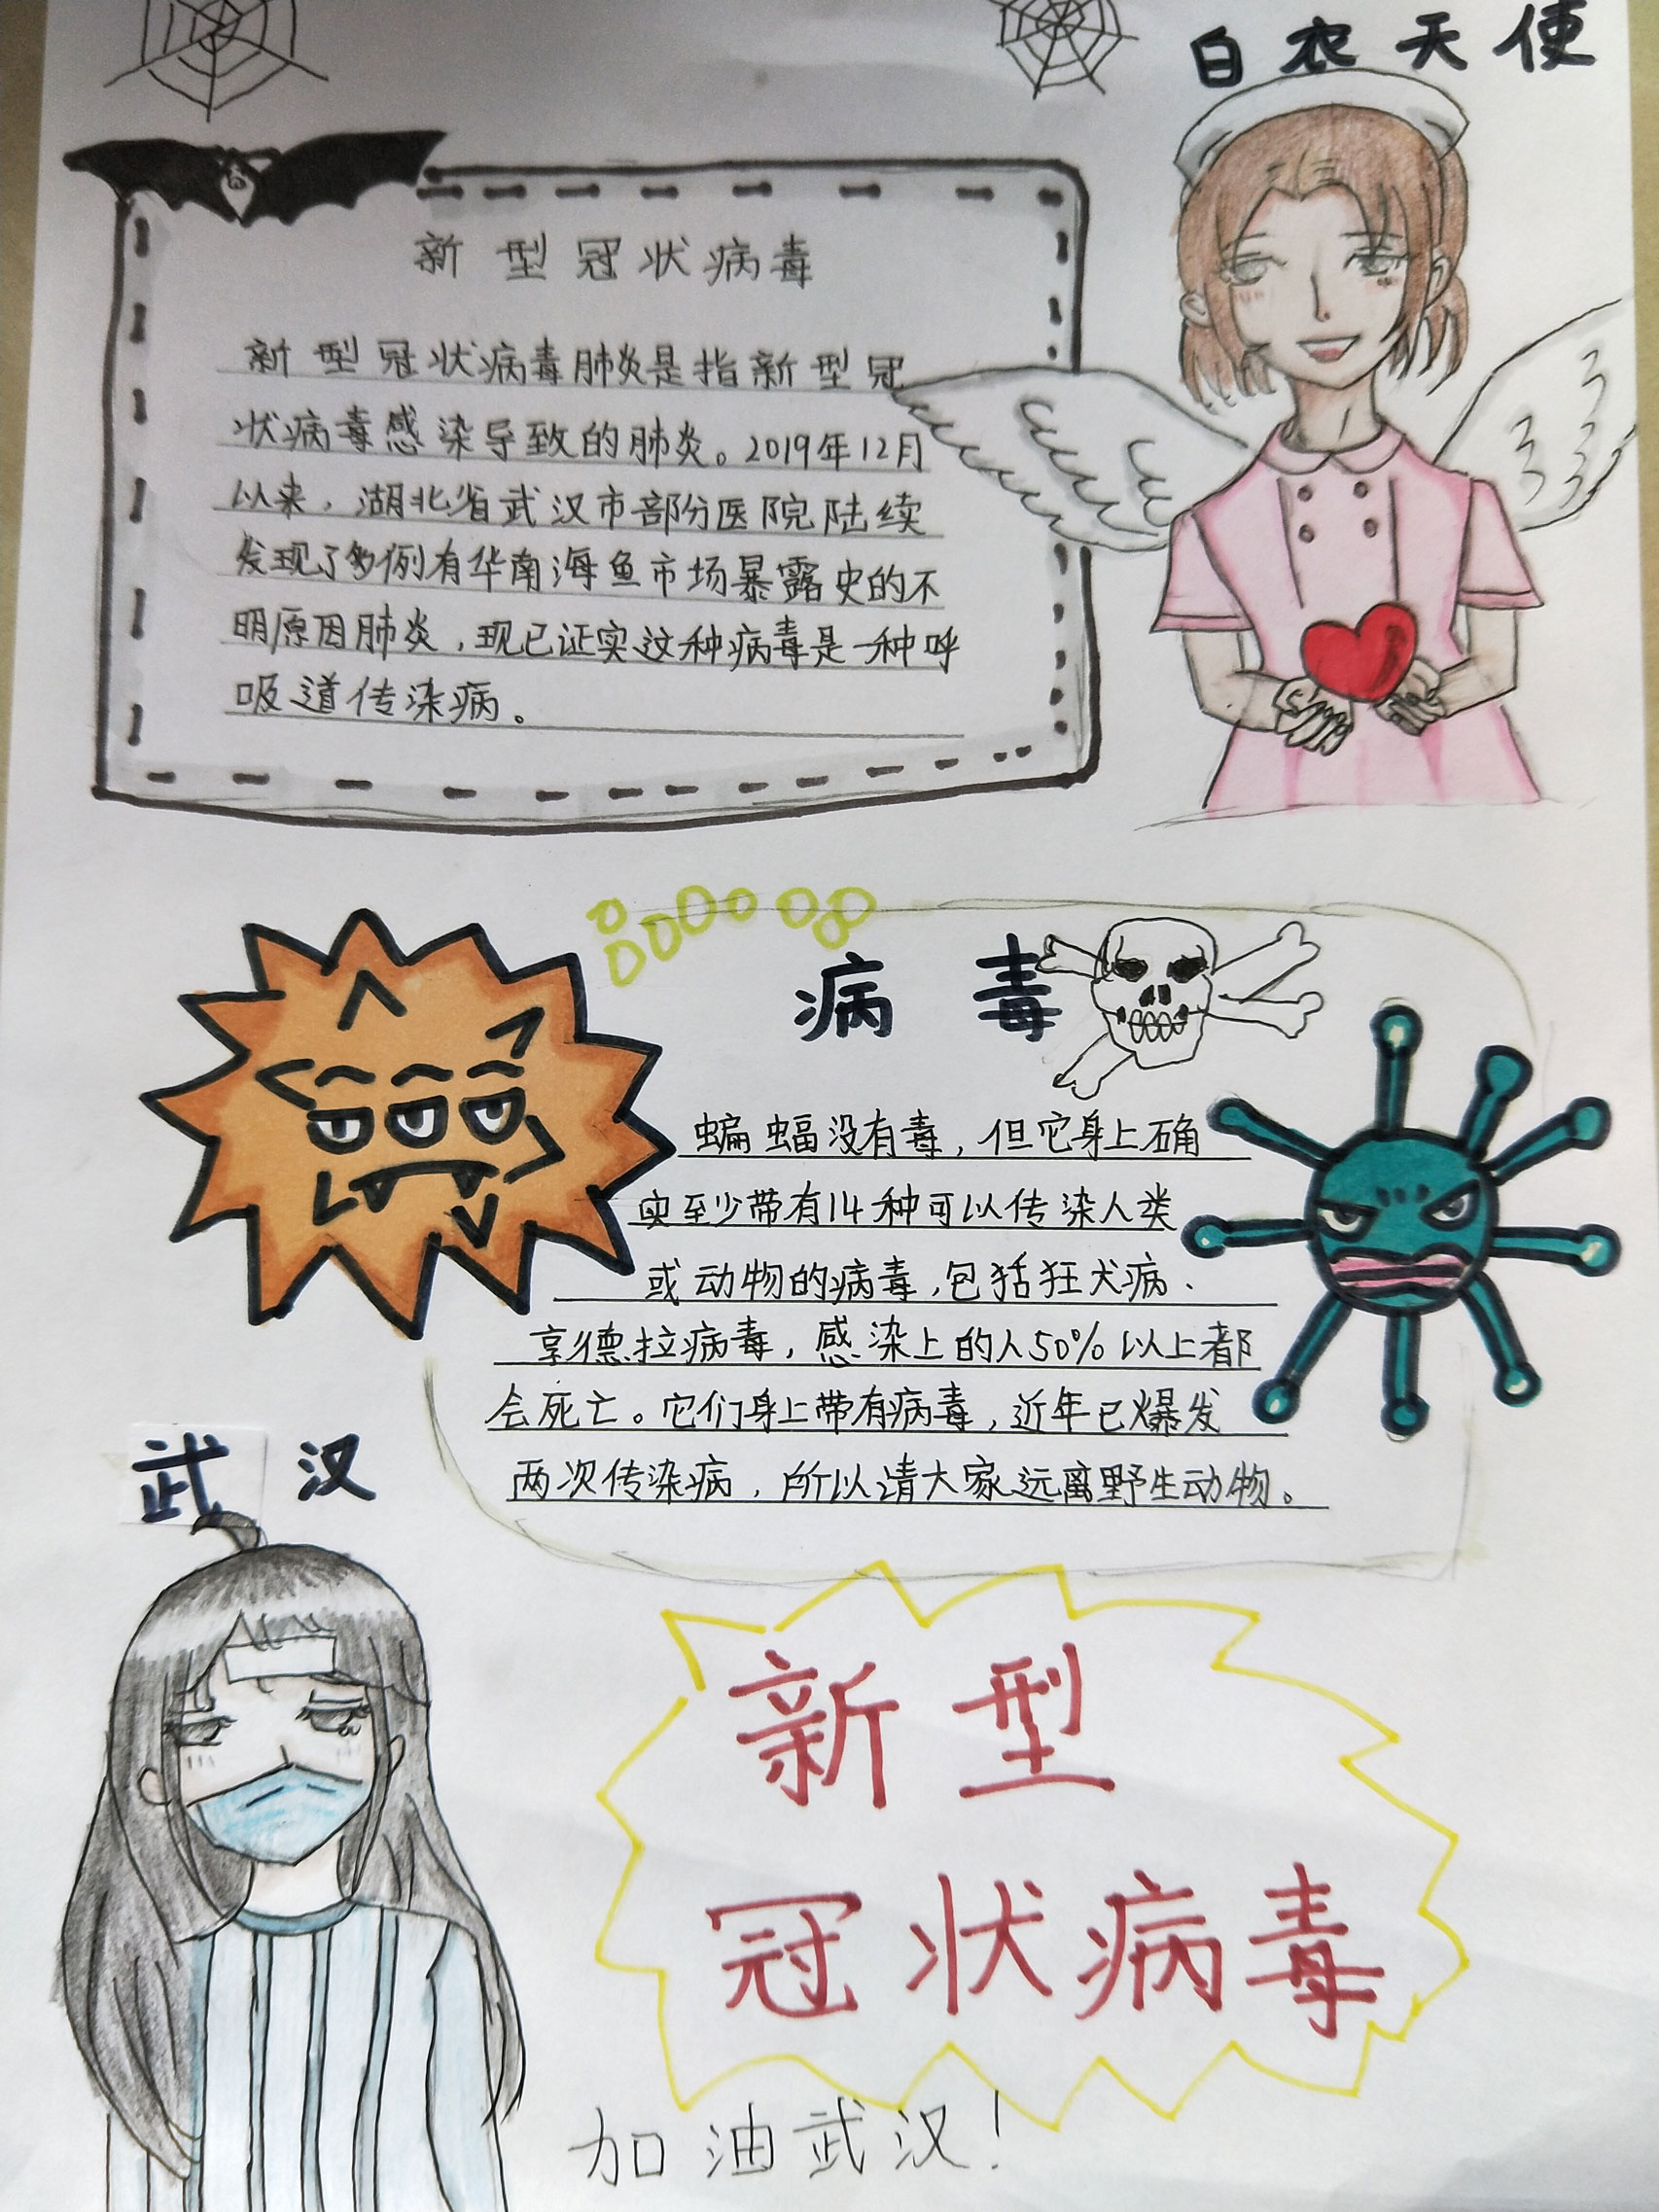 白衣天使
新型冠状病毒
新型冠状病毒肺炎是指新型冠
状病毒感染导致的肺炎。2019年12月
以来，湖北省武汉市部分医院陆续
发现了多例有华南海鱼市场暴露史的不
明原因肺炎，现已证实这种病毒是一种呼
吸道传染病。
病毒
蝙蝠没有毒，但它身上确
实至少带有14种可以传染人类
或动物的病毒，包括狂犬病、
亨德拉病毒，感染上的人50%以上都
会死亡。它们身上带有病毒，近年已爆发
两次传染病，所以请大家远离野生动物。
武汉
新型
冠状病毒
加油武汉！